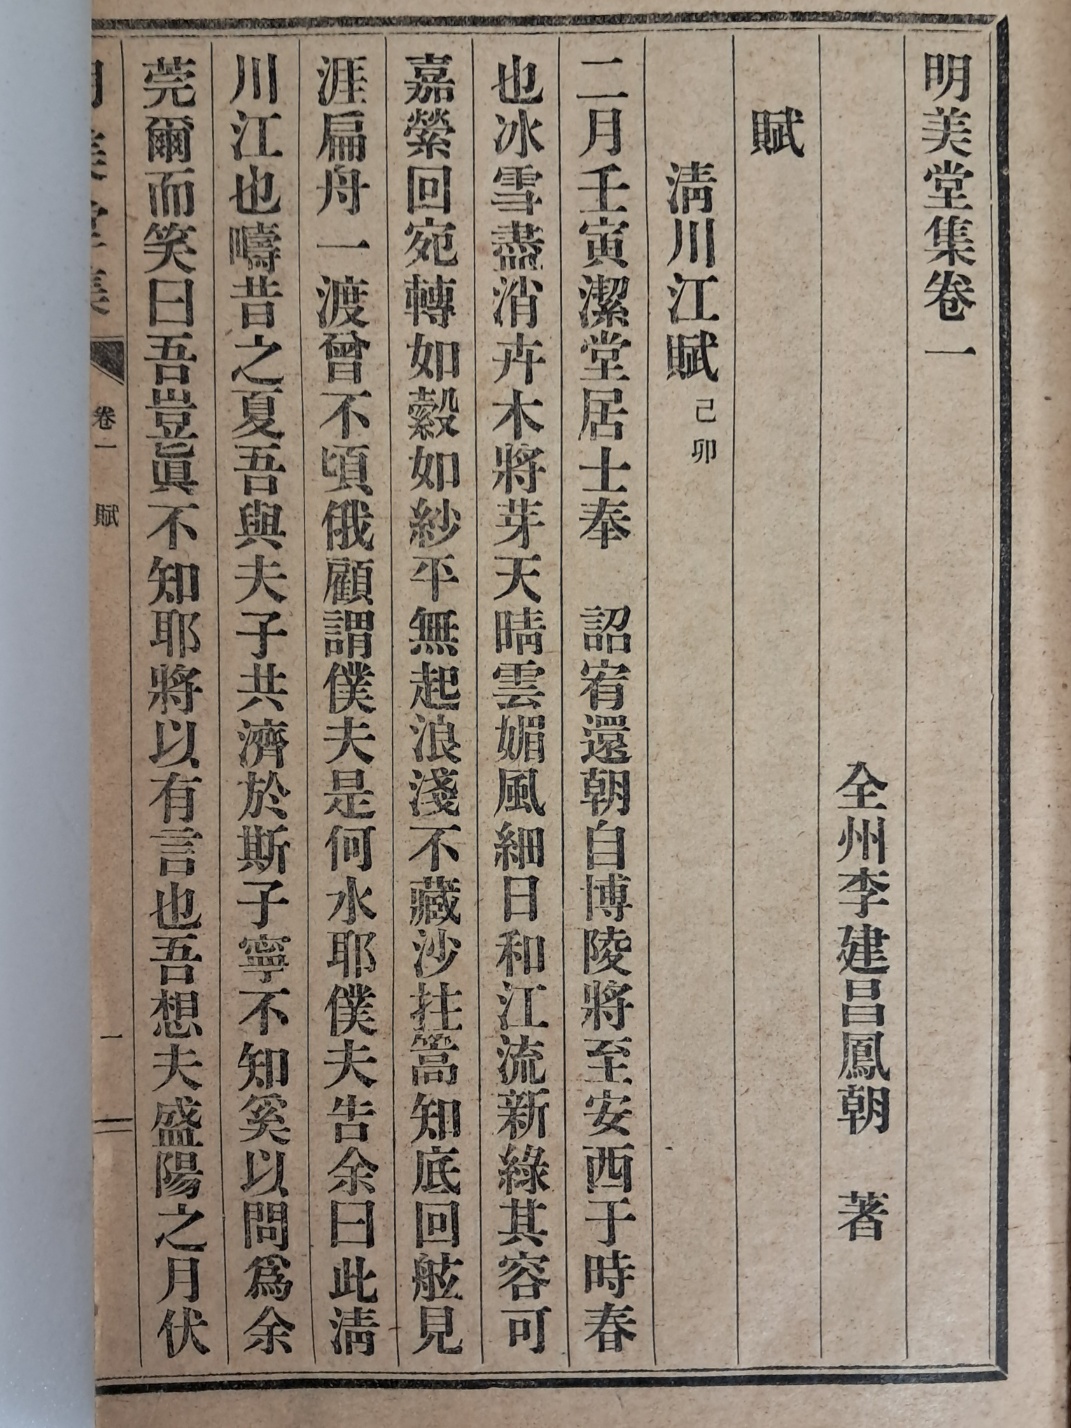 明美堂集卷一
全州李建昌鳳朝　著
賦
淸川江賦 己卯
二月壬寅潔堂居士奉　詔宥還朝自博陵將至安西于時春
也冰雪盡消卉木將芽天晴雲媚風細日和江流新綠其容可
嘉縈回宛轉如縠如紗平無起浪淺不藏沙拄篙知底回舷見
涯扁舟一渡曾不頃俄顧謂僕夫是何水耶僕夫告余曰此淸
川江也疇昔之夏吾與夫子共濟於斯子寧不知奚以問爲余
莞爾而笑曰吾豈眞不知耶將以有言也吾想夫盛陽之月伏
明美堂集 卷一 賦 一